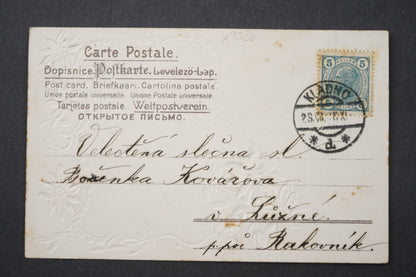 x9026
Carte Postale.
Dopisnice. Postkarte. Levelező-Lap.
Post card. Briefkaart. Cartolina postale.
Union postale universelle. Unione Postale universale.
Tarjetas postale. Weltpostverein.
ОТКРЫТОЕ ПИСЬМО.
5 5
KLADNO
* d. *
Velectěná slečna sl.
Boženka Kovářova
v Lužné.
p. při Rakovník.